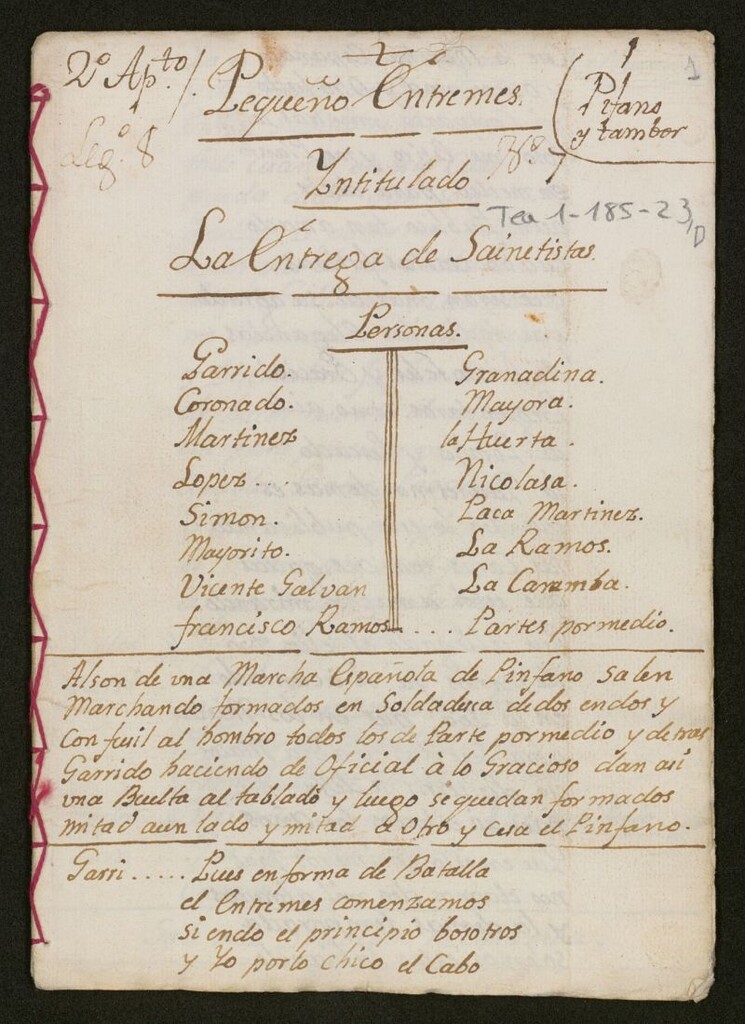 2º Apto/.
Legº. 8
Pequeño Entremes.
Pifano
y tambor
1
Yntitulado
Tea 1-185-23,D
La Entrega de Sainetistas.
Personas.
Garrido.
Coronado.
Martinez
Lopez...
Simon.
Mayorito.
Vicente Galvan
francisco Ramos....
Granadina.
Mayora.
la Huerta.
Nicolasa.
Paca Martinez.
La Ramos.
La Caramba.
Partes por medio.
Al son de vna Marcha Española de Pinfano salen
Marchando formados en Soldadesca de dos en dos y
con fusil al hombro todos los de Parte por medio y detras
Garrido haciendo de Oficial à lo Gracioso dan asi
vna Buelta al tablado y luego se quedan formados
mitad a un lado y mitad a Otro y cesa el Pinfano.
Garri ..... Pues en forma de Batalla
el Entremes comenzamos
siendo el principio bosotros
y Yo por lo chico el Cabo